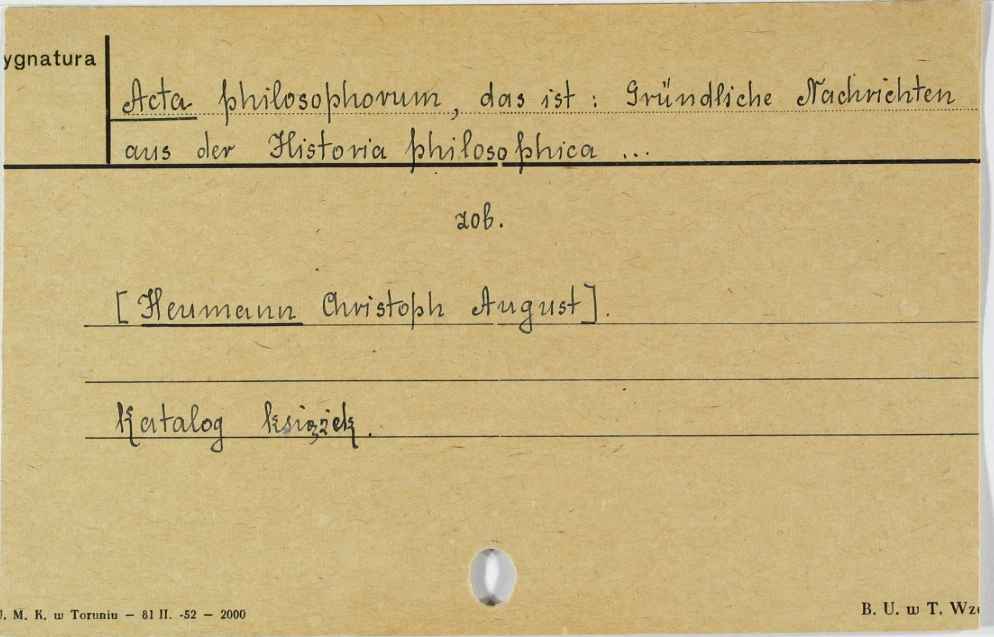 ygnatura
Acta philosophorum, das ist: Gründliche Nachrichten
aus der Historia philosophica ...
zob.
[Heumann Christoph August].
Katalog książek.
M. K. w Toruniu — 81 II. -52 — 2000
B. U. w T. Wz